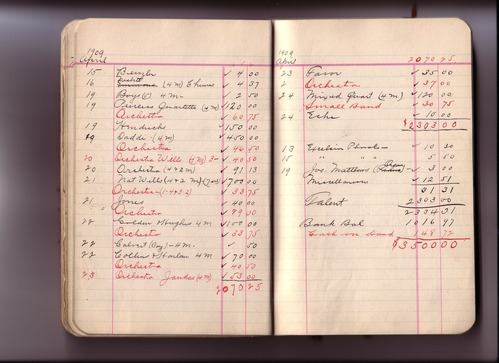 1909
April
15 Benzler ✓ 4 00
16 (4 M) 3 hours ✓ 4 37
19 Boys (5) 4 M. ✓ 2 50
19 Princess Quartette (4 M) ✓ 120 00
Orchestra ✓ 60 75
19 Hendricks ✓ 150 00
19 Daddi (4 M) ✓ 450 00
Orchestra ✓ 46 50
20 Orchestra Wills (4 M) 3- ✓ 40 50
20 Orchestra (4+2 M) ✓ 91 13
21 Nat Wills (4+2 M) ✓ 700 00
Orchestra ✓ 33 75
21 Jones ✓ 40 00
Orchestra ✓ 89 00
22 Golden Hughes 4 M ✓ 100 00
Orchestra ✓ 33 75
22 Calvert (Boy) - 4 M. ✓ 50
22 Collins & Harlan 4 M ✓ 70 00
Orchestra ✓ 40 50
23 Orchestra (4 M) ✓ 53 00
2070 25
1909
April
2070 25
23 Favor ✓ 35 00
Orchestra ✓ 37 00
24 Mixed Quart (4 M) ✓ 120 00
Small Band ✓ 30 75
24 ✓ 10 00
$2303 00
13 - 10 30
15 " " - 5 50
19 Jos. Matthews ✓ 3 00
Miscellaneous ✓ 12 51
31 31
Talent 2303 00
2334 31
Bank Bal 1016 97
Cash on hand 148 72
$3500 00